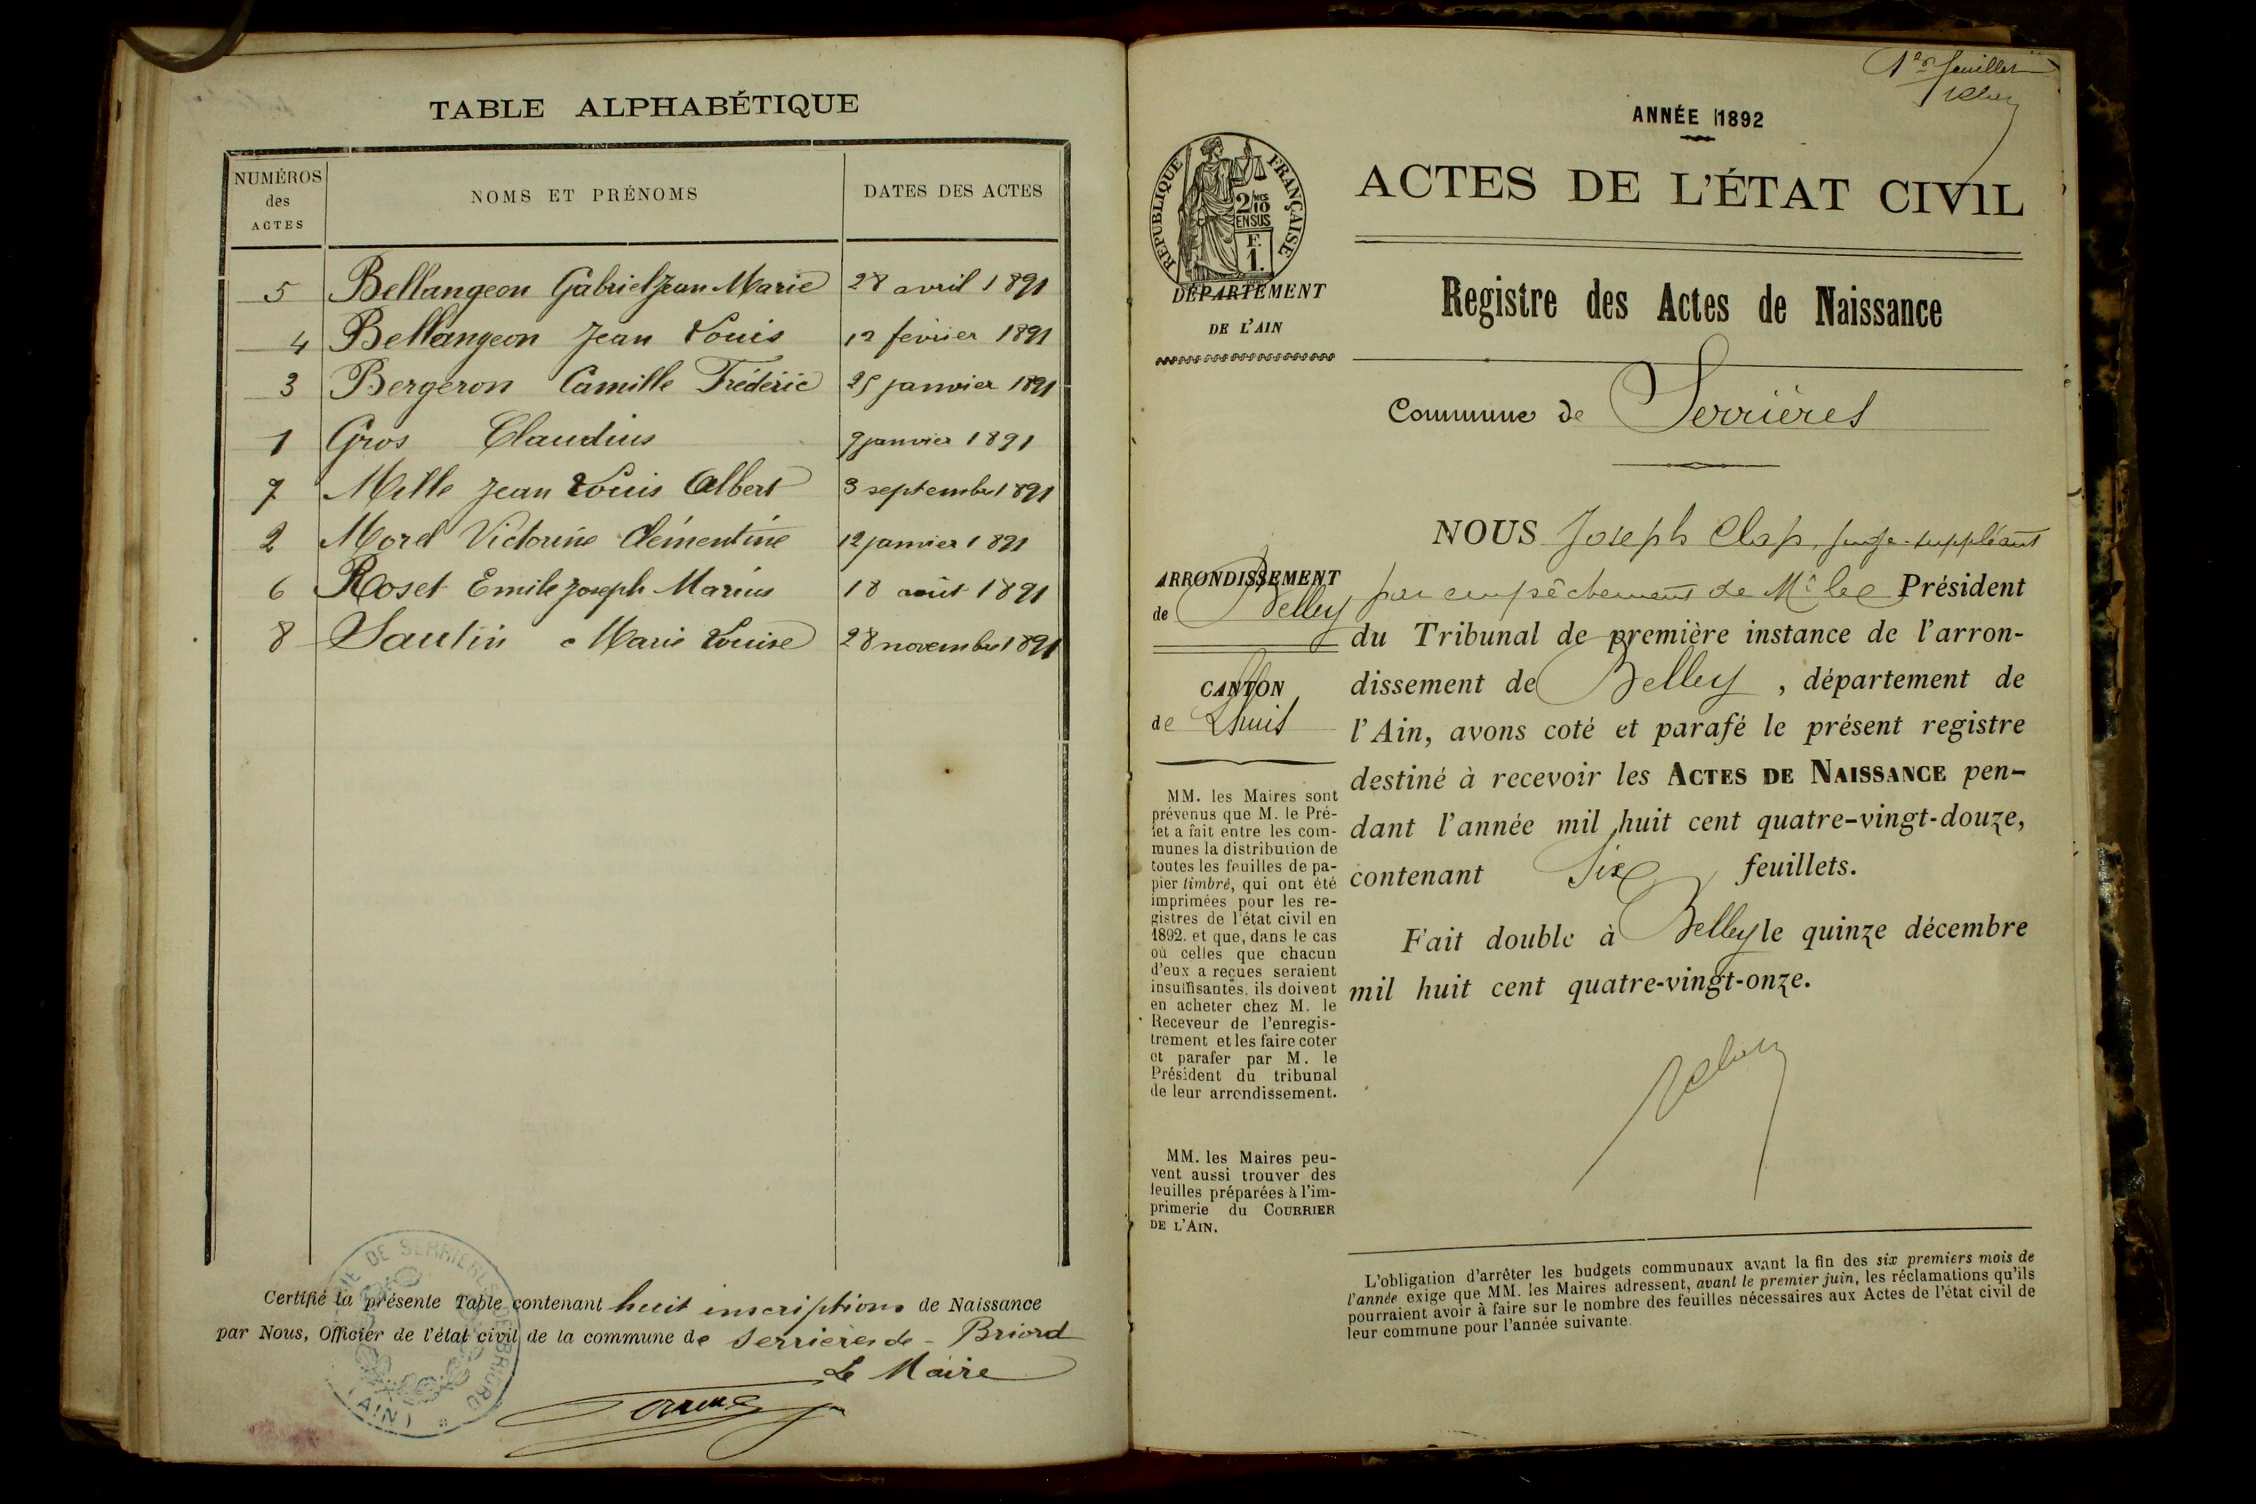 TABLE ALPHABÉTIQUE
NUMÉROS des ACTES NOMS ET PRÉNOMS DATES DES ACTES
5 Bellangeon Gabriel Jean Marie 28 avril 1891
4 Bellangeon Jean Louis 12 février 1891
3 Bergeron Camille Frédéric 25 janvier 1891
1 Gros Claudius 9 janvier 1891
7 Mille Jean Louis Albert 3 septembre 1891
2 Morel Victorine Clémentine 12 janvier 1891
6 Roset Emile Joseph Marius 18 août 1891
8 Sautin Marie Louise 28 novembre 1891
Certifié la présente Table contenant huit inscriptions de Naissance
par Nous, Officier de l'état civil de la commune de Serrières de - Briord
Le Maire
DE SERRIERES DE BRIORD
(AIN)
1er feuillet
ANNÉE 1892
RÉPUBLIQUE FRANÇAISE
2/10 MES
EN SUS
F.
1.
ACTES DE L'ÉTAT CIVIL
DÉPARTEMENT
DE L'AIN
Registre des Actes de Naissance
Commune de Serrières
ARRONDISSEMENT
de Belley
CANTON
de Lhuis
MM. les Maires sont
prévenus que M. le Pré-
fet a fait entre les com-
munes la distribution de
toutes les feuilles de pa-
pier timbré, qui ont été
imprimées pour les re-
gistres de l'état civil en
1892. et que, dans le cas
où celles que chacun
d'eux a reçues seraient
insuffisantes, ils doivent
en acheter chez M. le
Receveur de l'enregis-
trement et les faire coter
et parafer par M. le
Président du tribunal
de leur arrondissement.
MM. les Maires peu-
vent aussi trouver des
feuilles préparées à l'im-
primerie du COURRIER
DE L'AIN.
NOUS Joseph Clap, juge suppléant
par empêchement de Mr le Président
du Tribunal de première instance de l'arron-
dissement de Belley, département de
l'Ain, avons coté et parafé le présent registre
destiné à recevoir les ACTES DE NAISSANCE pen-
dant l'année mil huit cent quatre-vingt-douze,
contenant Six feuillets.
Fait double à Belley le quinze décembre
mil huit cent quatre-vingt-onze.
L'obligation d'arrêter les budgets communaux avant la fin des six premiers mois de
l'année exige que MM. les Maires adressent, avant le premier juin, les réclamations qu'ils
pourraient avoir à faire sur le nombre des feuilles nécessaires aux Actes de l'état civil de
leur commune pour l'année suivante.